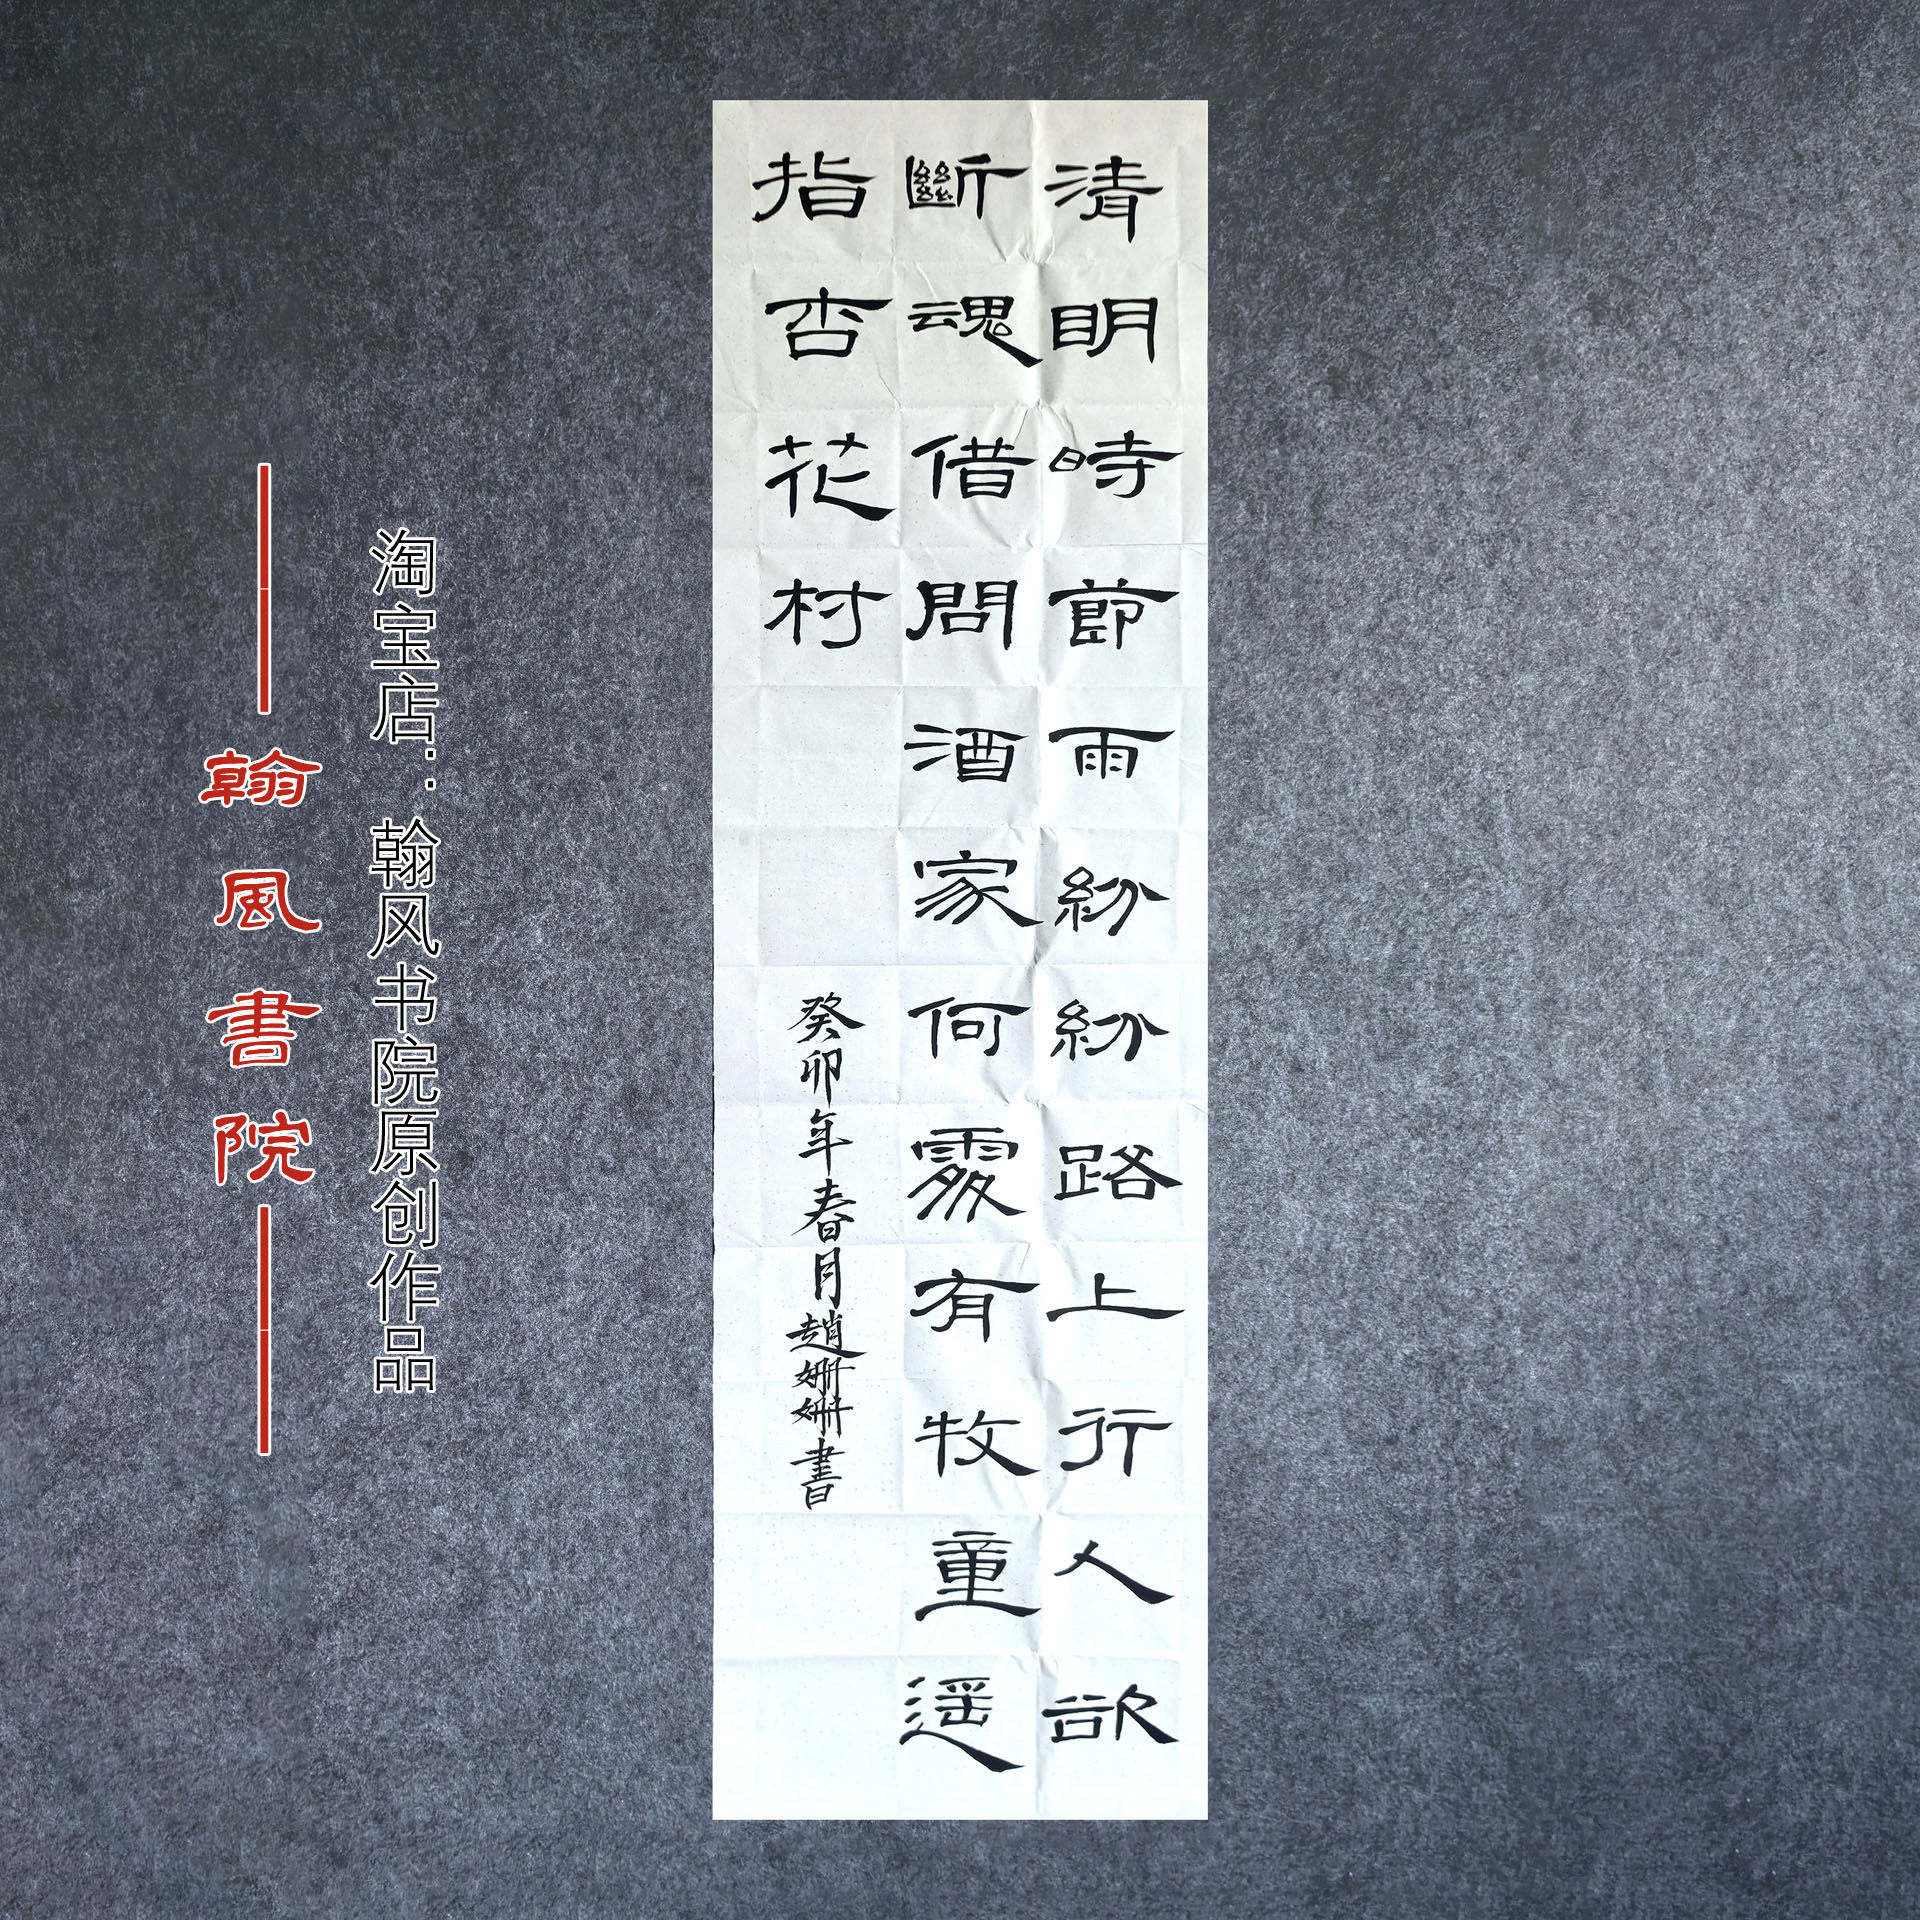 清明時節雨紛紛路上行人欲
斷魂借問酒家何處有牧童遥
指杏花村
癸卯年春月趙姍姍書
淘宝店：翰风书院原创作品
翰風書院